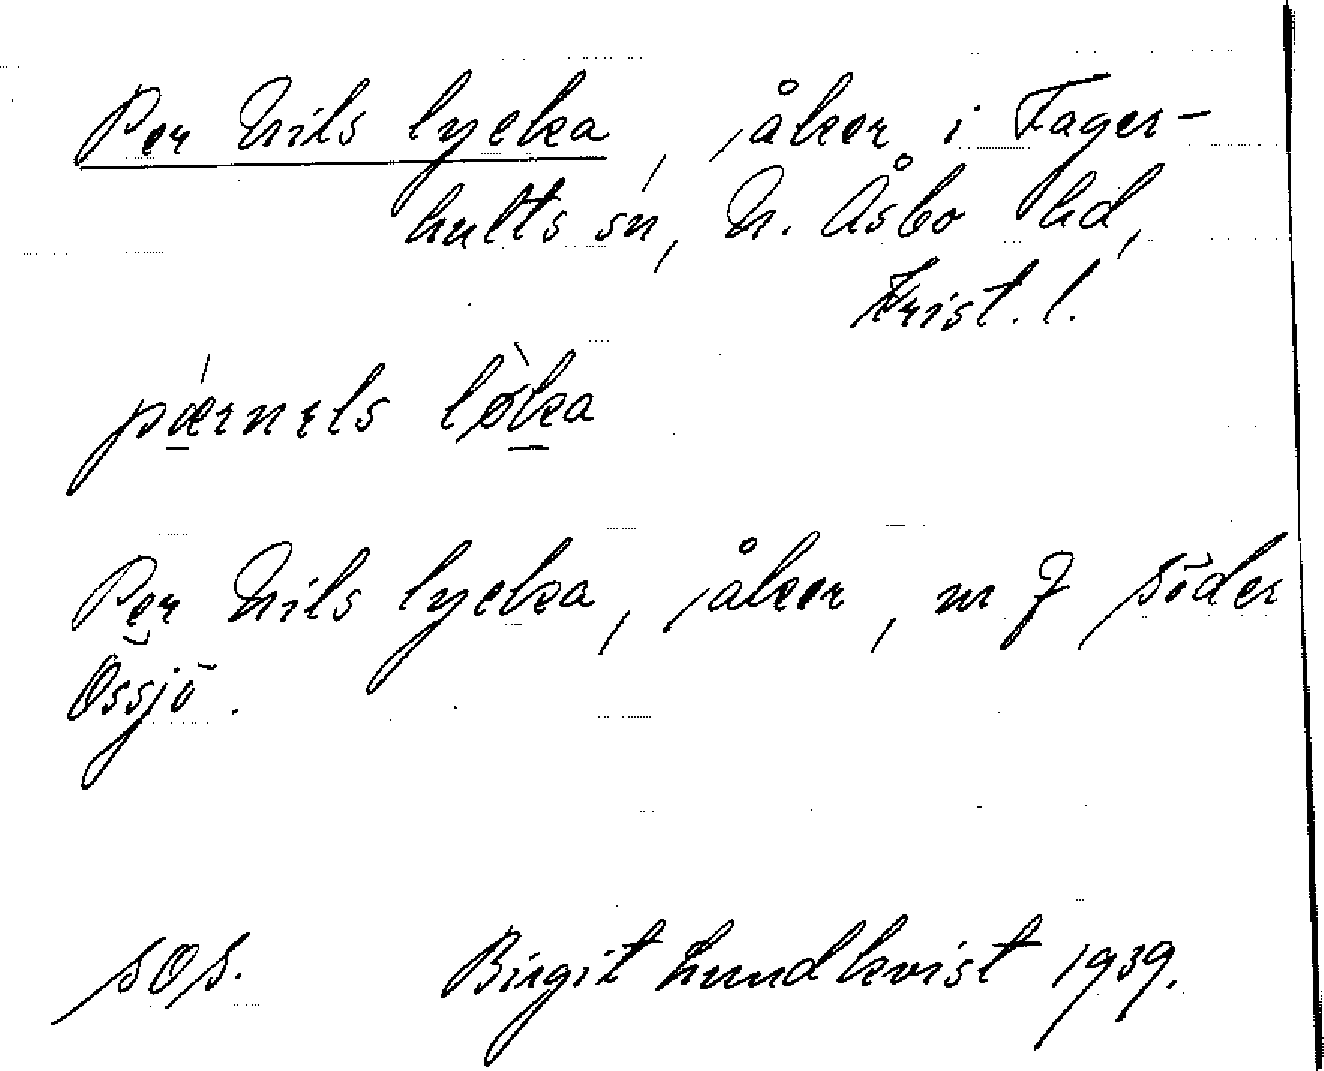 Per Nils lycka, åker i Fager-
hults sn, N. Åsbo hd,
Krist. l.
pærnɛls løka
Per Nils lycka, åker, nr 7 Söder
Össjö.
SOS. Birgit Lundkvist 1939.